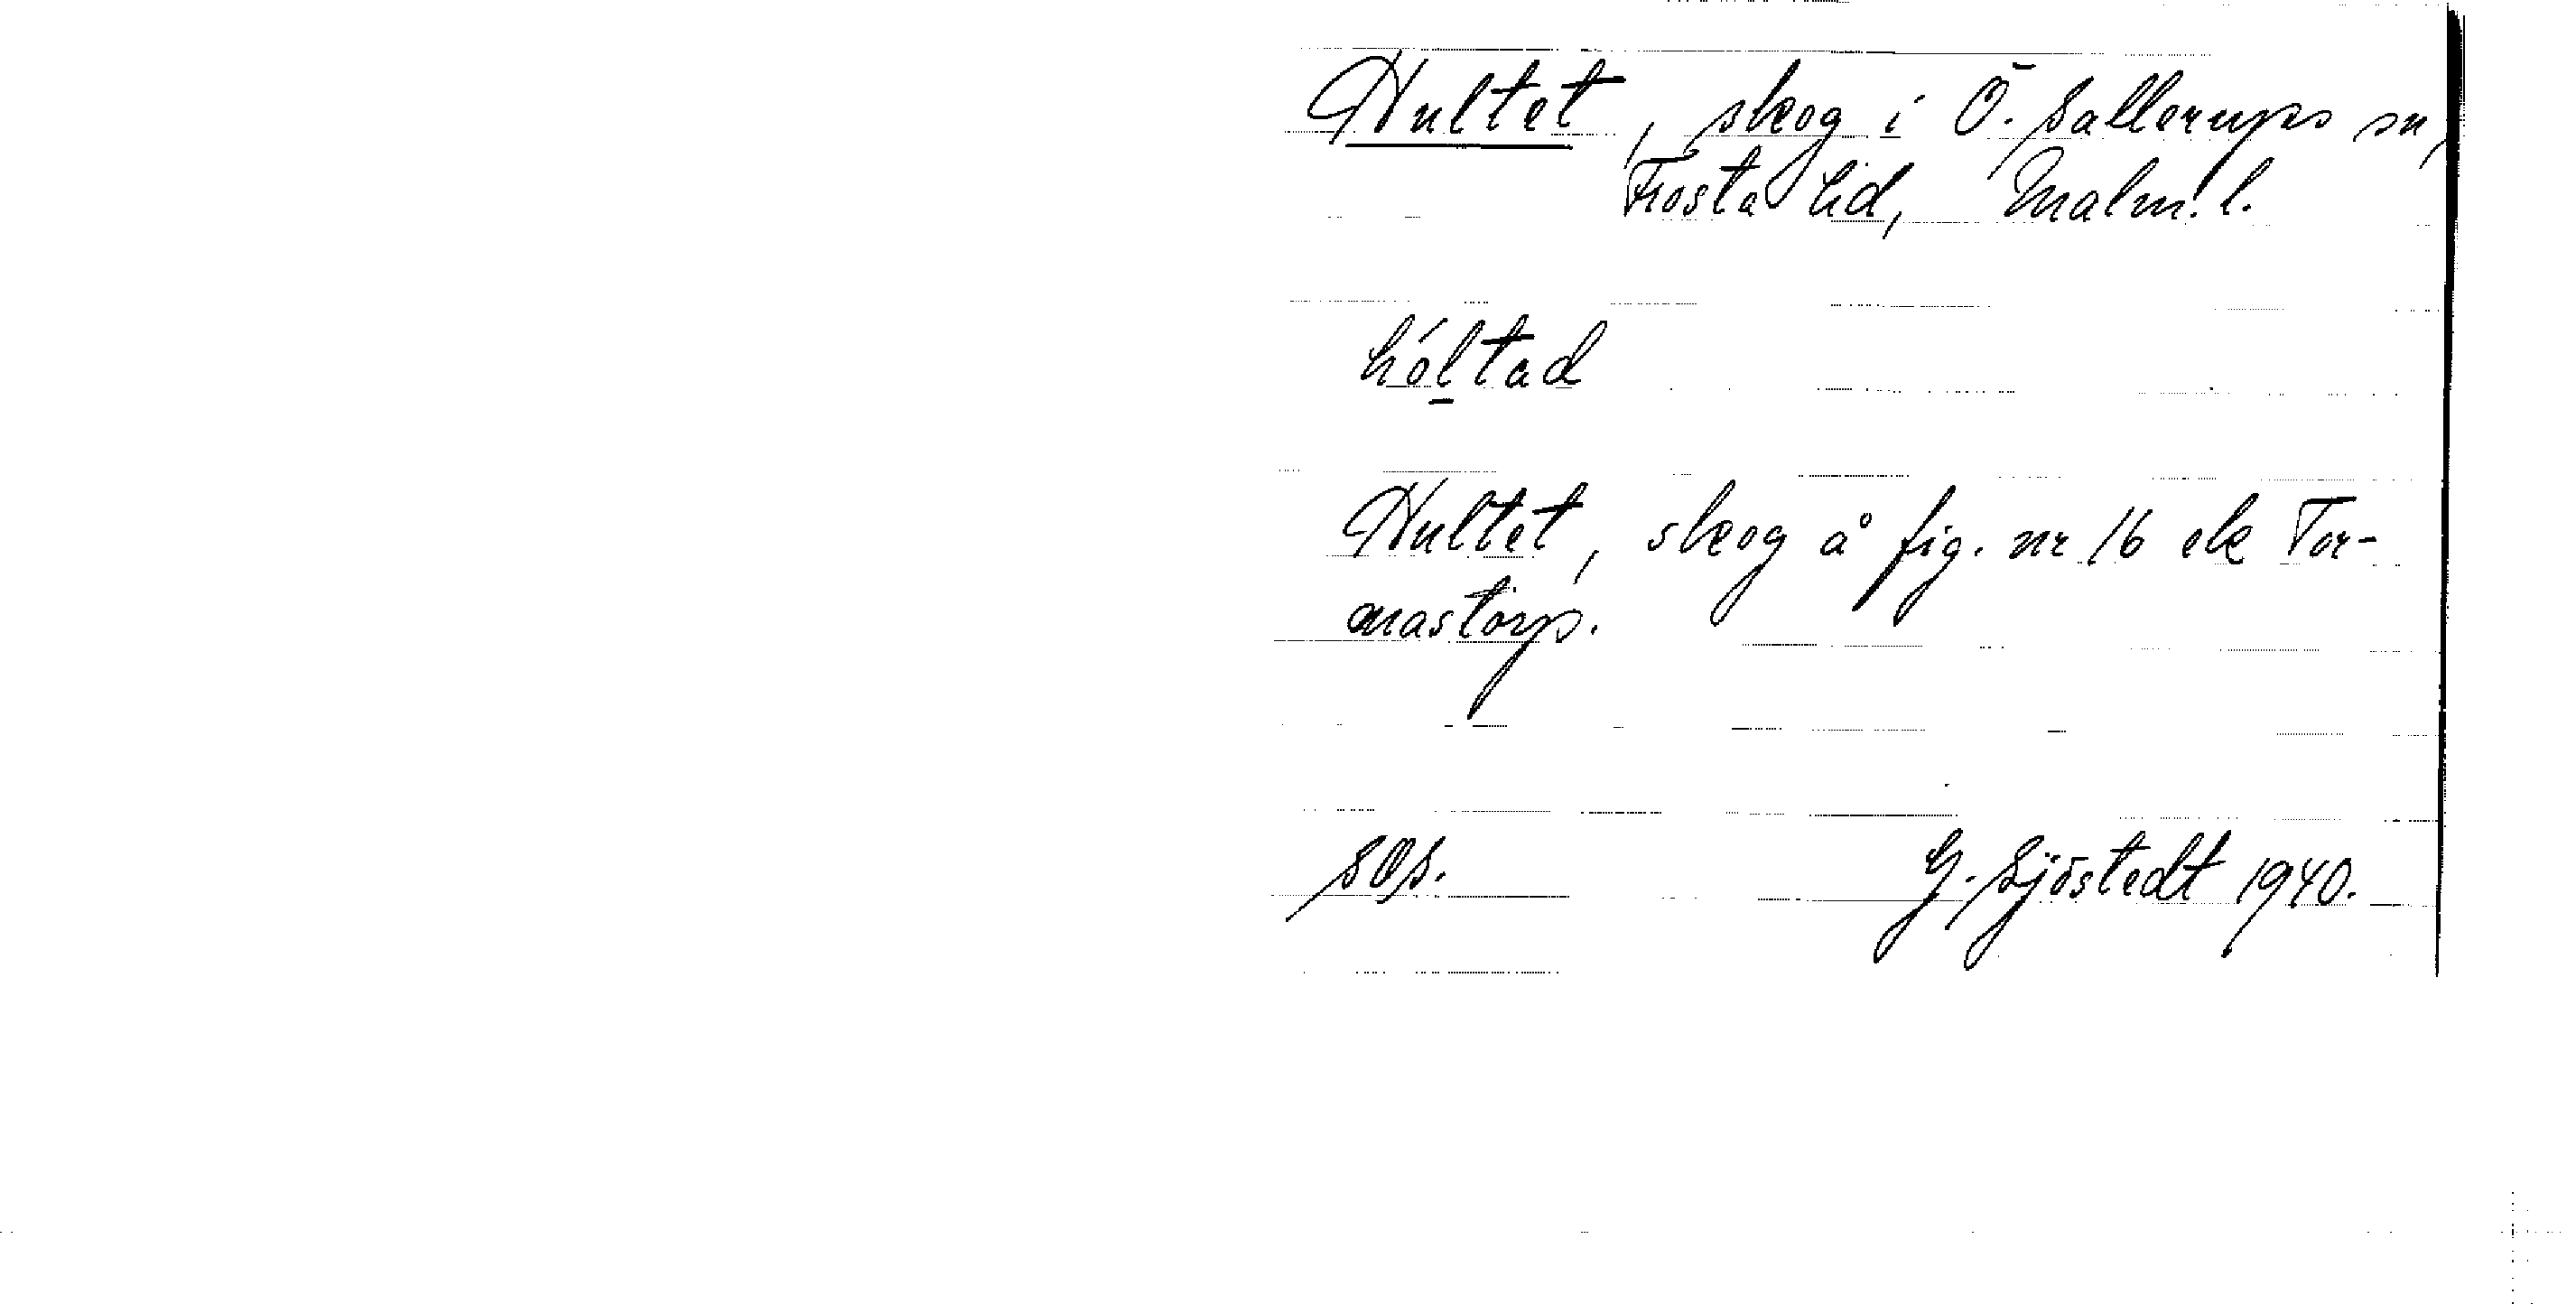 Hultet, skog i Ö. Sallerups sn,
Frosta hd, Malm. l.
hóltad
Hultet, skog å fig. nr 16 ek Tor-
mastorp.
SOS.
G. Sjöstedt 1940.